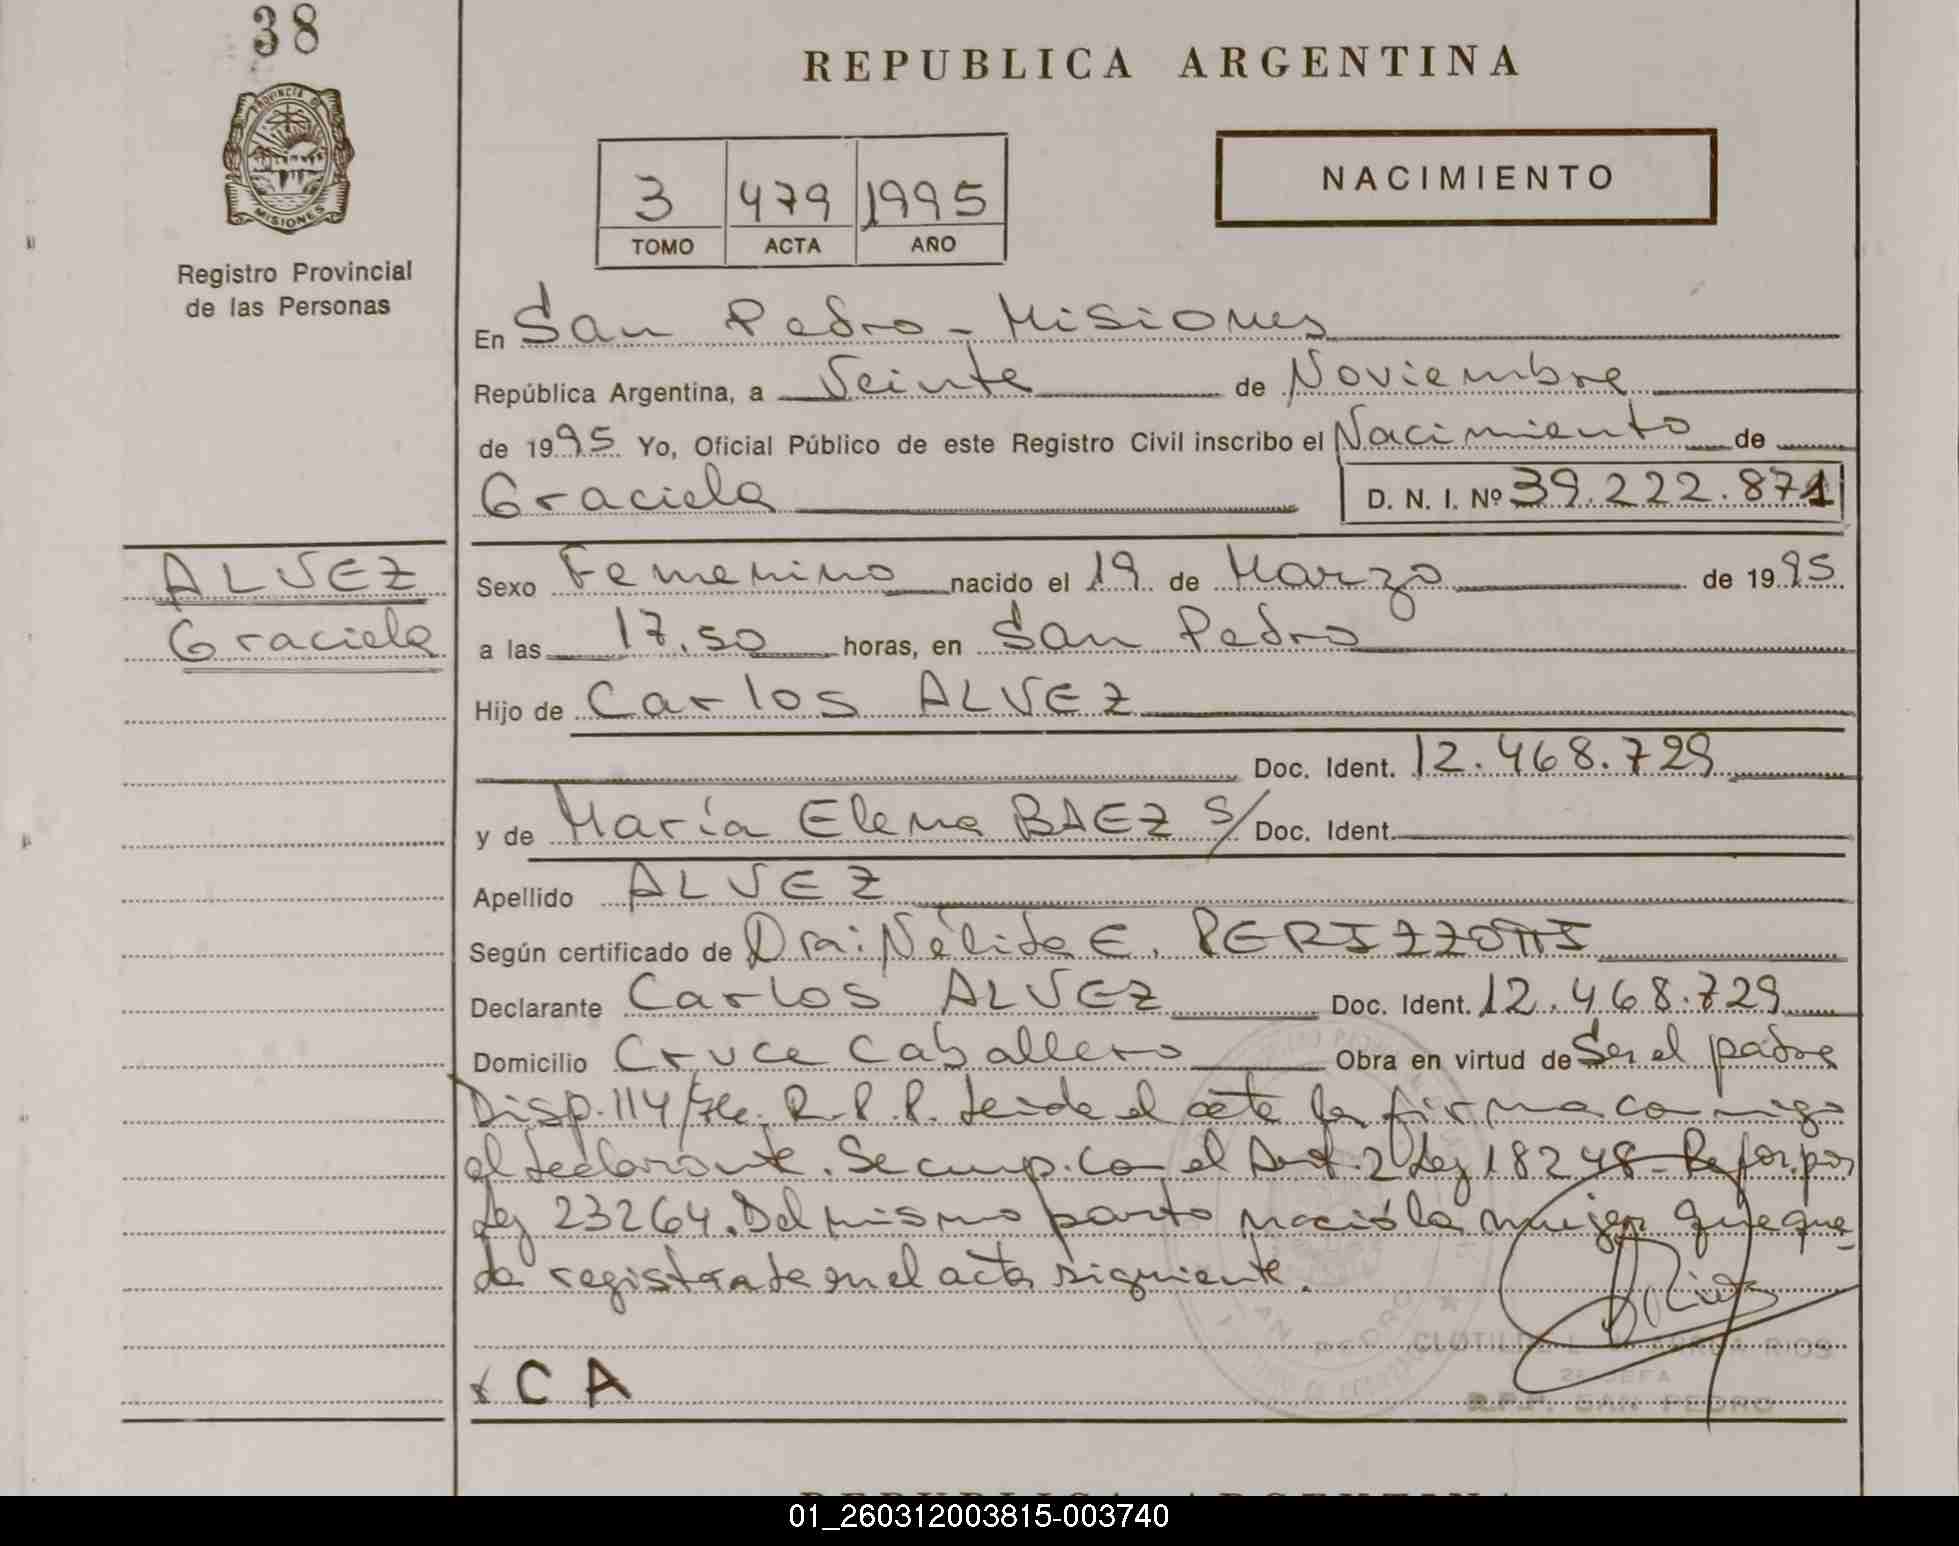 38
REPUBLICA ARGENTINA
PROVINCIA DE
MISIONES
Registro Provincial
de las Personas
3 479 1995
TOMO ACTA AÑO
NACIMIENTO
En San Pedro - Misiones
República Argentina, a Veinte de Noviembre
de 1995 Yo, Oficial Público de este Registro Civil inscribo el Nacimiento de
Graciela D. N. I. Nº 39.222.871
ALVEZ
Graciela
Sexo Femenino nacido el 19 de Marzo de 1995
a las 17.50 horas, en San Pedro
Hijo de Carlos ALVEZ
Doc. Ident. 12.468.729
y de María Elena BAEZ S/ Doc. Ident.
Apellido ALVEZ
Según certificado de Dra: Nélida E. PERIZZOTTI
Declarante Carlos ALVEZ Doc. Ident. 12.468.729
Domicilio Cruce Caballero Obra en virtud de Ser el padre
Disp. 114/ R.P.P. Leida el acta la firma conmigo
el declarante. Se cump. con el Art. 2 Ley 18248 - Refor. por
Ley 23264. Del mismo parto nació la mujer que que-
da registrada en el acta siguiente.
x C A
SAN PEDRO
CLOTILDE RIOS
JEFA
R.P.P. SAN PEDRO
REPUBLICA ARGENTINA
01_260312003815-003740